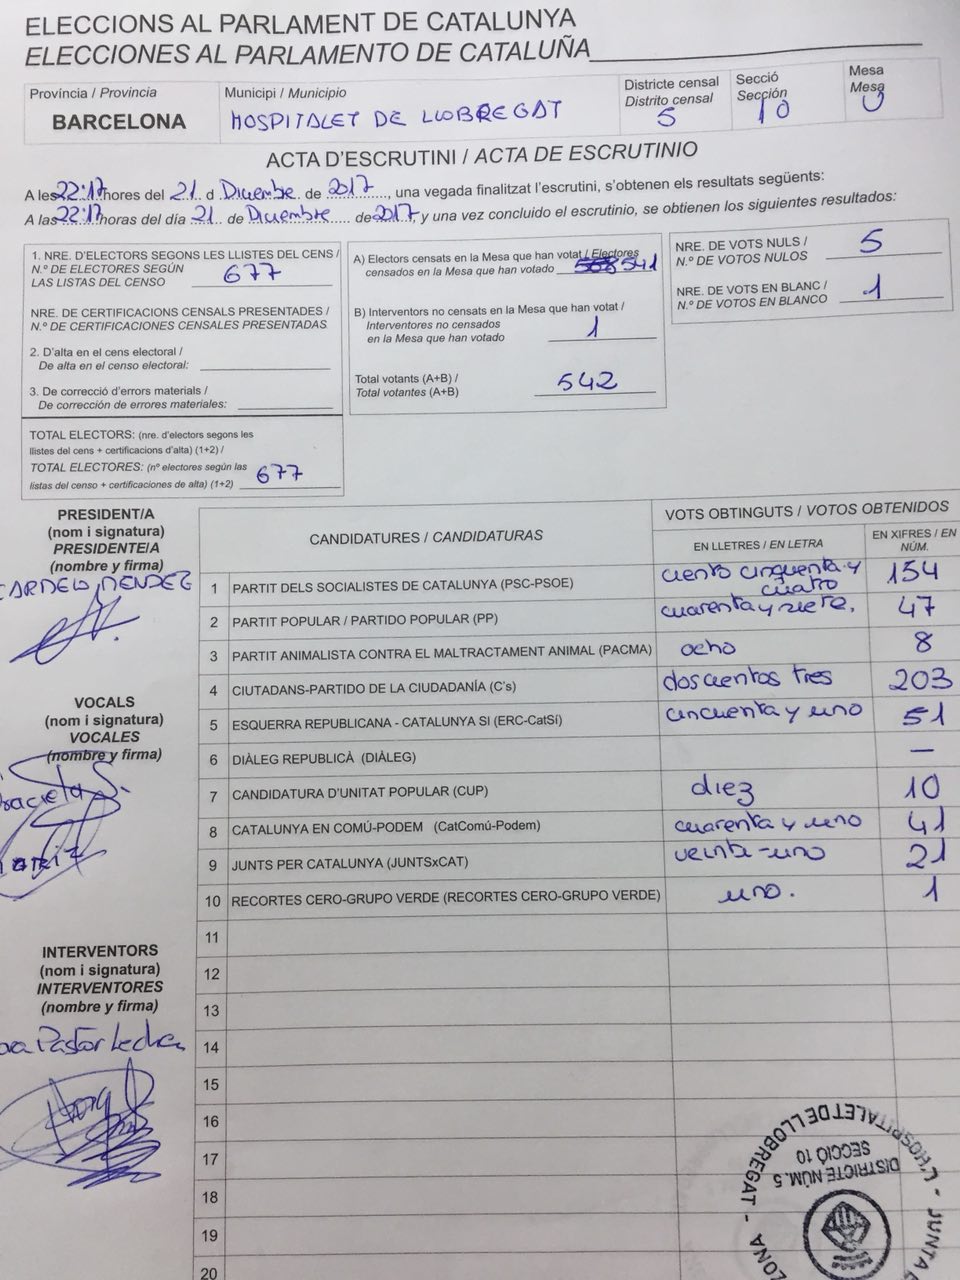 ELECCIONS AL PARLAMENT DE CATALUNYA
ELECCIONES AL PARLAMENTO DE CATALUÑA
Província / Provincia
BARCELONA
Municipi / Municipio
HOSPITALET DE LLOBREGAT
Districte censal
Distrito censal
5
Secció
Sección
10
Mesa
Mesa
U
ACTA D'ESCRUTINI / ACTA DE ESCRUTINIO
A les 22:17 hores del 21 d Diciembre de 2017, una vegada finalitzat l'escrutini, s'obtenen els resultats següents:
A las 22:17 horas del día 21 de Diciembre de 2017, y una vez concluido el escrutinio, se obtienen los siguientes resultados:
1. NRE. D'ELECTORS SEGONS LES LLISTES DEL CENS /
N.º DE ELECTORES SEGÚN
LAS LISTAS DEL CENSO 677
NRE. DE CERTIFICACIONS CENSALS PRESENTADES /
N.º DE CERTIFICACIONES CENSALES PRESENTADAS
2. D'alta en el cens electoral /
De alta en el censo electoral:
3. De correcció d'errors materials /
De corrección de errores materiales:
TOTAL ELECTORS: (nre. d'electors segons les
llistes del cens + certificacions d'alta) (1+2) /
TOTAL ELECTORES: (nº electores según las
listas del censo + certificaciones de alta) (1+2) 677
A) Electors censats en la Mesa que han votat / Electores
censados en la Mesa que han votado 541
B) Interventors no censats en la Mesa que han votat /
Interventores no censados
en la Mesa que han votado 1
Total votants (A+B) /
Total votantes (A+B) 542
NRE. DE VOTS NULS /
N.º DE VOTOS NULOS 5
NRE. DE VOTS EN BLANC /
N.º DE VOTOS EN BLANCO 1
PRESIDENT/A
(nom i signatura)
PRESIDENTE/A
(nombre y firma)
MENDEZ
VOCALS
(nom i signatura)
VOCALES
(nombre y firma)
INTERVENTORS
(nom i signatura)
INTERVENTORES
(nombre y firma)
Pastor
CANDIDATURES / CANDIDATURAS
VOTS OBTINGUTS / VOTOS OBTENIDOS
EN LLETRES / EN LETRA
EN XIFRES / EN NÚM.
1 PARTIT DELS SOCIALISTES DE CATALUNYA (PSC-PSOE) ciento cinquenta y cuatro 154
2 PARTIT POPULAR / PARTIDO POPULAR (PP) cuarenta y siete, 47
3 PARTIT ANIMALISTA CONTRA EL MALTRACTAMENT ANIMAL (PACMA) ocho 8
4 CIUTADANS-PARTIDO DE LA CIUDADANÍA (C's) doscientos tres 203
5 ESQUERRA REPUBLICANA - CATALUNYA SI (ERC-CatSí) cincuenta y uno 51
6 DIÀLEG REPUBLICÀ (DIÀLEG) —
7 CANDIDATURA D'UNITAT POPULAR (CUP) diez 10
8 CATALUNYA EN COMÚ-PODEM (CatComú-Podem) cuarenta y uno 41
9 JUNTS PER CATALUNYA (JUNTSxCAT) veinte-uno 21
10 RECORTES CERO-GRUPO VERDE (RECORTES CERO-GRUPO VERDE) uno. 1
11
12
13
14
15
16
17
18
19
20
L'HOSPITALET DE LLOBREGAT - JUNTA
DISTRICTE NÚM. 5
SECCIÓ 10
ZONA